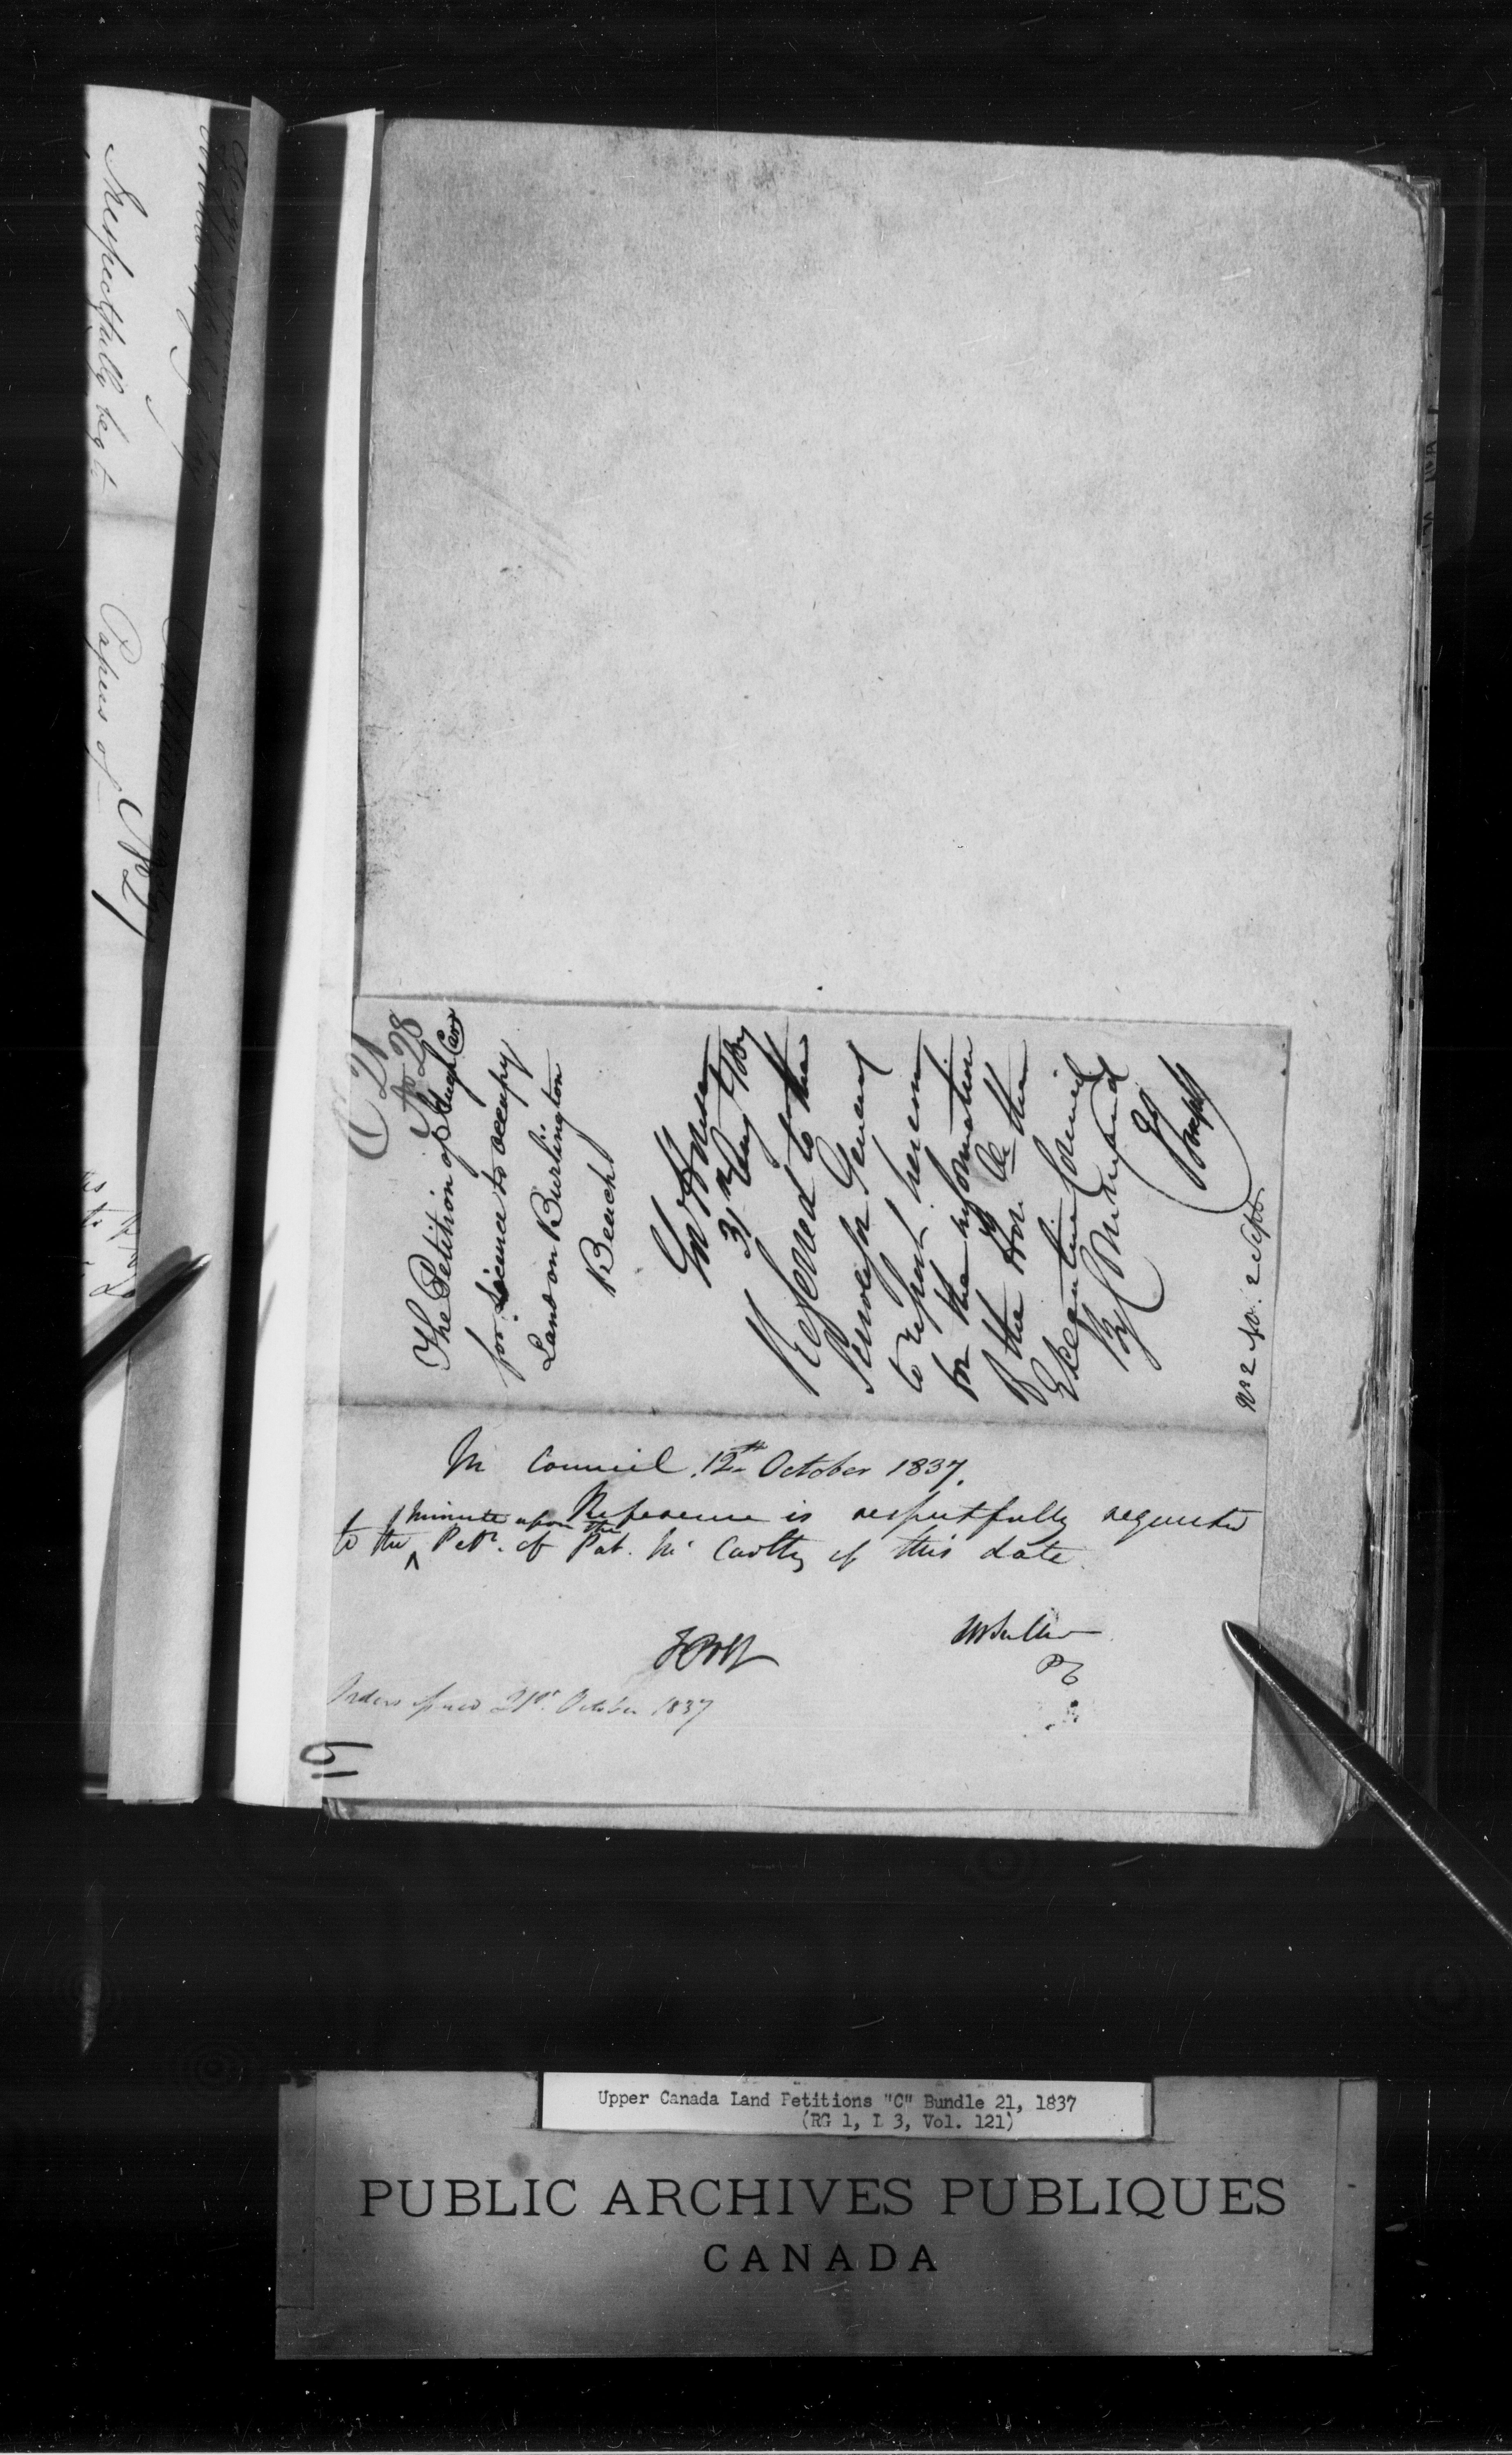 Respectfully beg t
Papers of
No 2
C 21
No 28
The Petition of Hugh Carr
for Licence to occupy
Land on Burlington
Beach
Govt House
31 Aug 1837
Referred to the
Surveyor General
to report hereon
for the information
of the Hon. the
Executive Council
By Command
J Joseph
No 2 fo: 2 Sept
In Council, 12th October 1837.
Reference is respectfully requested
to the minute upon the Petn. of Pat. Mc Carthy of this date.
FBH
RBSullivan
PC
Orders issued 21st October 1837
Upper Canada Land Petitions "C" Bundle 21, 1837
(RG 1, L 3, Vol. 121)
PUBLIC ARCHIVES PUBLIQUES
CANADA